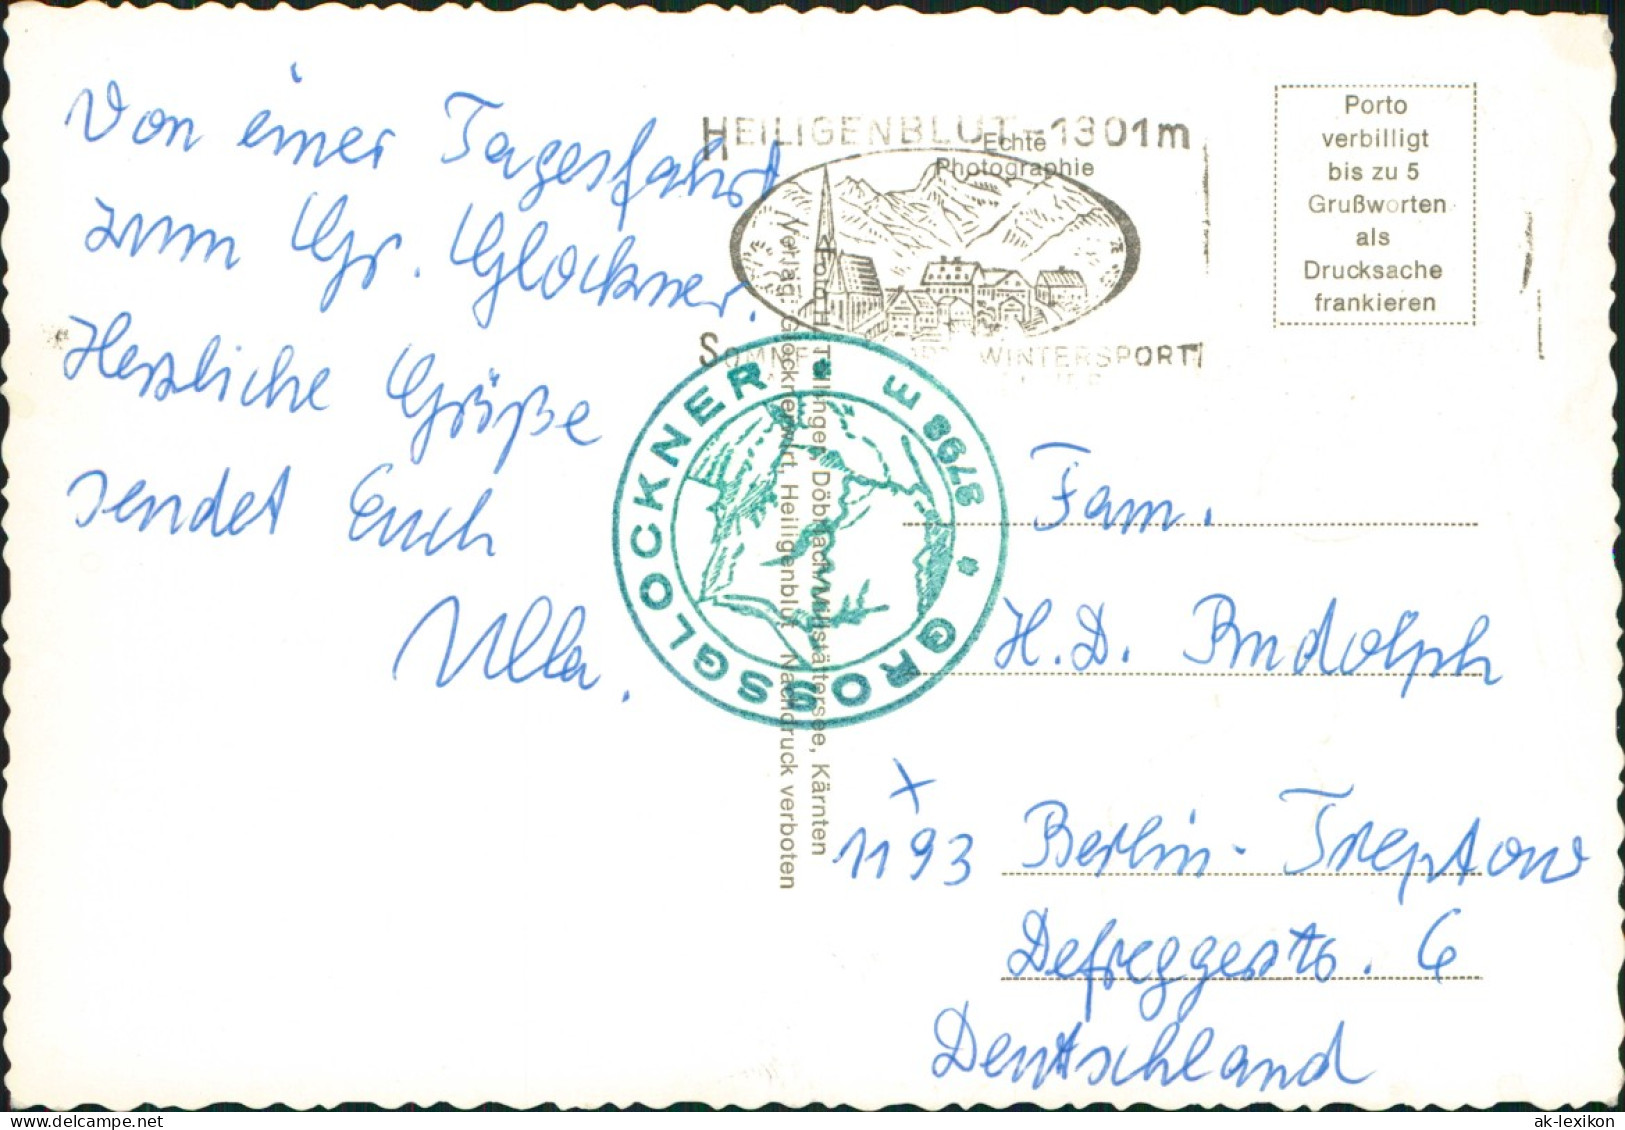 Von einer Tagesfahrt
zum Gr. Glockner.
Herzliche Grüße
sendet Euch
Ulla.
HEILIGENBLUT 1301m
WINTERSPORT
Echte
Photographie
Porto
verbilligt
bis zu 5
Grußworten
als
Drucksache
frankieren
GROSSGLOCKNER • 3798 M *
Döbriach, Millstättersee, Kärnten
Verlag: Glocknerwirt, Heiligenblut Nachdruck verboten
Fam.
H. D. Rudolph
x
1193 Berlin-Treptow
Defreggerstr. 6
Deutschland
www.delcampe.net
ak-lexikon